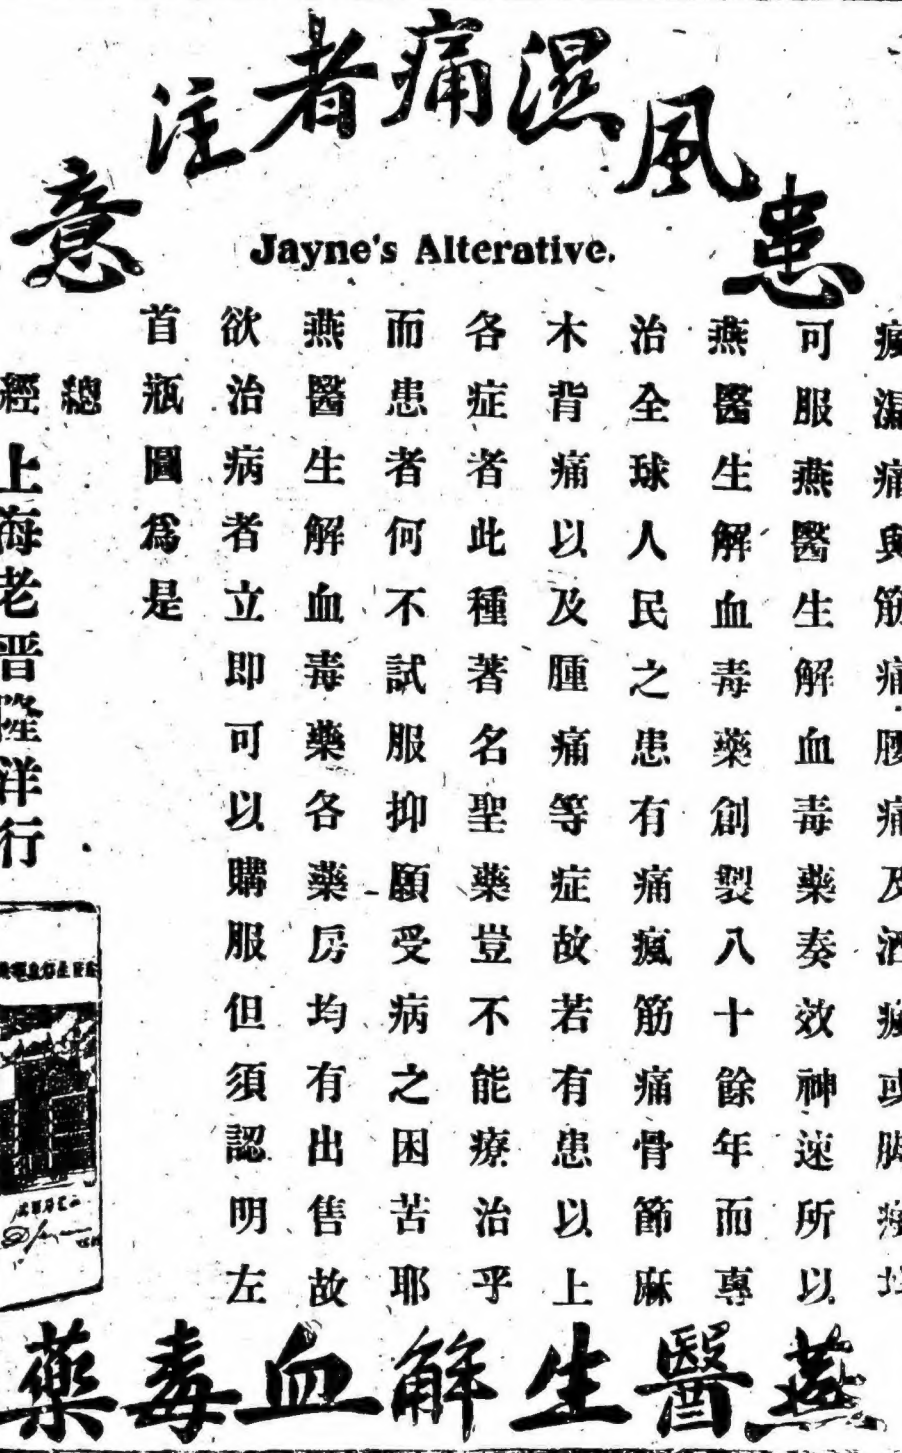 患風濕痛者注意
Jayne's Alterative.
濕痛與筋痛腰痛及酒或脚均
可服燕醫生解血毒藥奏效神速所以
燕醫生解血毒藥創製八十餘年而專
治全球人民之患有痛瘋筋痛骨節麻
木背痛以及腫痛等症故若有患以上
各症者此種著名聖藥豈不能療治乎
而患者何不試服抑願受病之困苦耶
燕醫生解血毒藥各藥房均有出售故
欲治病者立即可以購服但須認明左
首瓶圖爲是
總
經上海老晋隆洋行
燕醫生解血毒藥